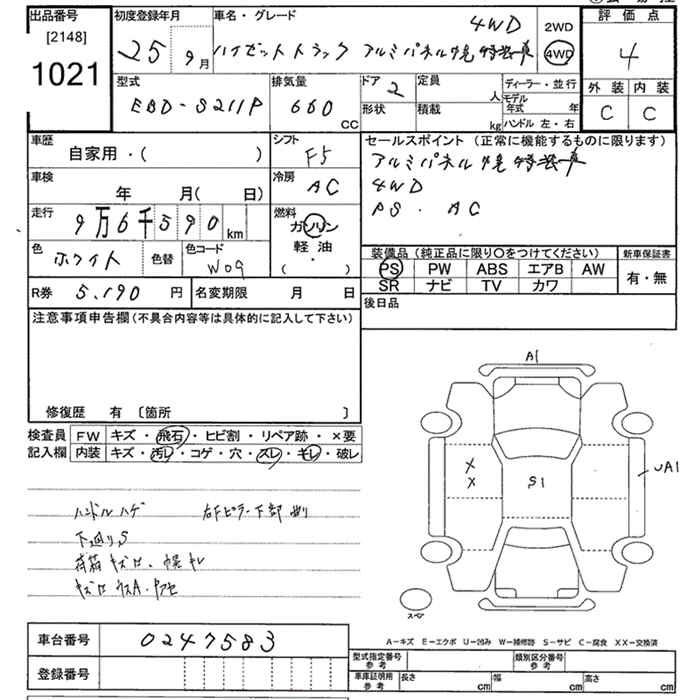 出品番号 [2148] 1021
初度登録年月 25 9月
車名・グレード 4WD
ハイゼットトラック アルミパネル幌 特装車
2WD
4WD
評価点 4
外装 内装
C C
型式 EBD-S211P
排気量 660 CC
ドア 2
形状
定員 人
積載 kg
ディーラー・並行
モデル年式 年
ハンドル 左・右
車歴 自家用・( )
シフト F5
セールスポイント (正常に機能するものに限ります)
アルミパネル幌 特装車
4WD
PS. AC
車検 年 月(日)
冷房 AC
走行 9万6千590km
燃料 ガソリン
軽油
・
( )
色 ホワイト 色替 色コード W09
装備品 (純正品に限り○をつけてください)
PS PW ABS エアB AW
SR ナビ TV カワ
新車保証書
有・無
R券 5.190 円 名変期限 月 日
後日品
注意事項申告欄(不具合内容等は具体的に記入して下さい)
修復歴 有 〔箇所 〕
検査員記入欄
FW キズ・飛石・ヒビ割・リペア跡・×要
内装 キズ・汚レ・コゲ・穴・スレ・キレ・破レ
ハンドルハゲ 右Fピラー下部曲り
下廻りS
荷箱キズ凹、幌キレ
キズ凹
A1
X
X
S1
UA1
スペア
A-キズ E-エクボ U-凹み W-補修跡 S-サビ C-腐食 XX-交換済
車台番号 0247583
登録番号
型式指定番号 参考
類別区分番号 参考
車庫証明用 参考 長さ cm 幅 cm 高さ cm